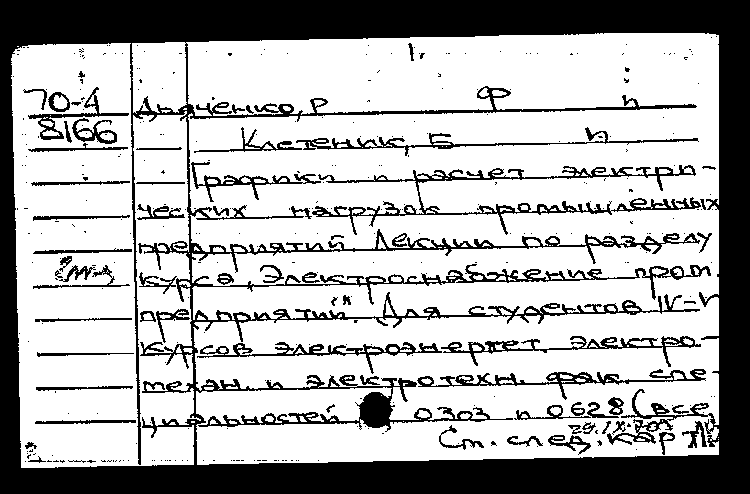 1.
70-4 Дьяченко, Р Ф п
8166 Клетеник, Б п
Графики и расчет электри-
ческих нагрузок промышленных
предприятий Лекции по разделу
курса „Электроснабжение пром.
предприятий". Для студентов IV-V
курсов электроэнергет. электро-
механ. и электротехн. фак. спе-
циальностей 0303 и 0628 (все
Ст. след. кар